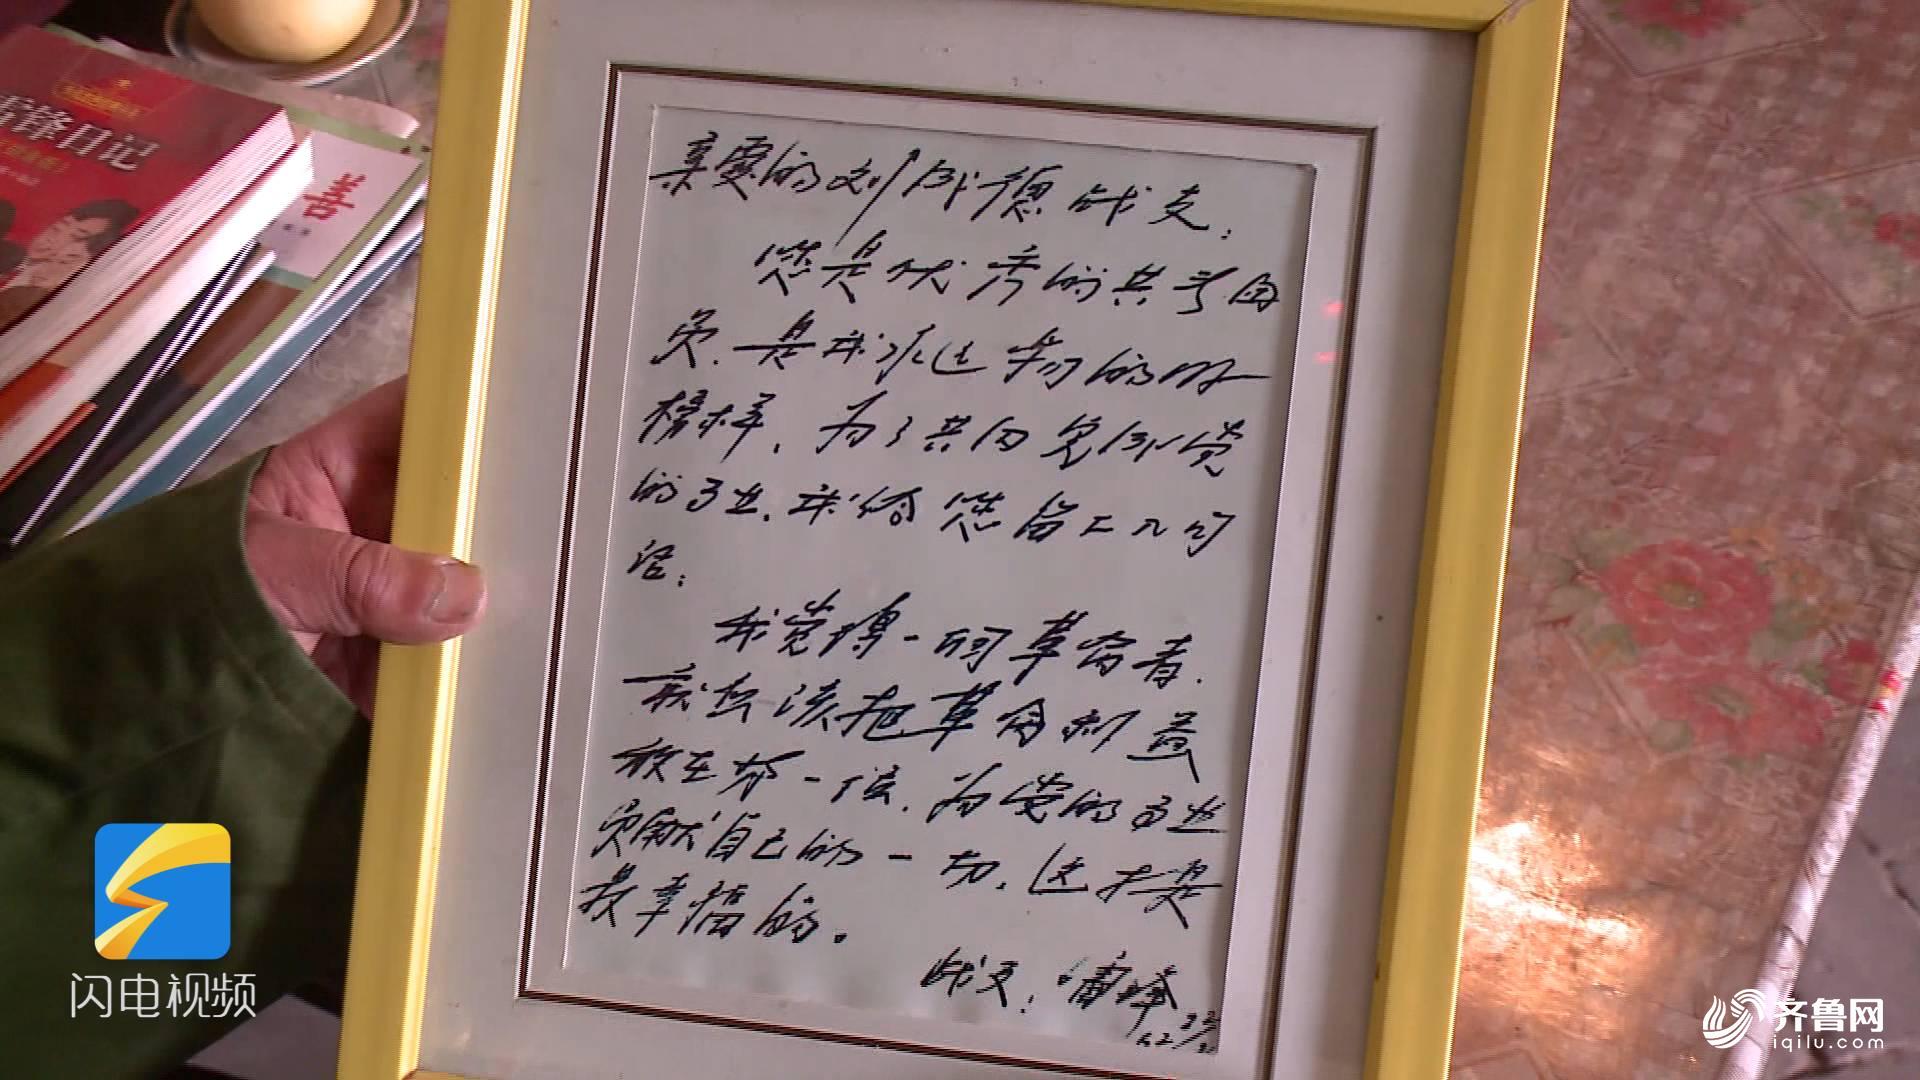 雷锋日记
善
亲爱的刘成德战友：
您是优秀的共产团
员，是我永远学习的好
榜样，为了共同完成党
的事业，我给您留上几句
话：
我觉得一个革命者，
就应该把革命利益
放在第一位，为党的事业
贡献自己的一切，这才是
最幸福的。
战友：雷锋
闪电视频
齐鲁网
iqilu.com